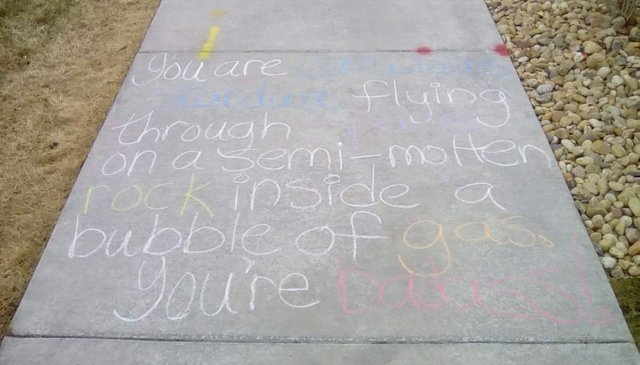 You are
flying
through
on a semi-molten
rock inside a
bubble of gas.
You're Badass!